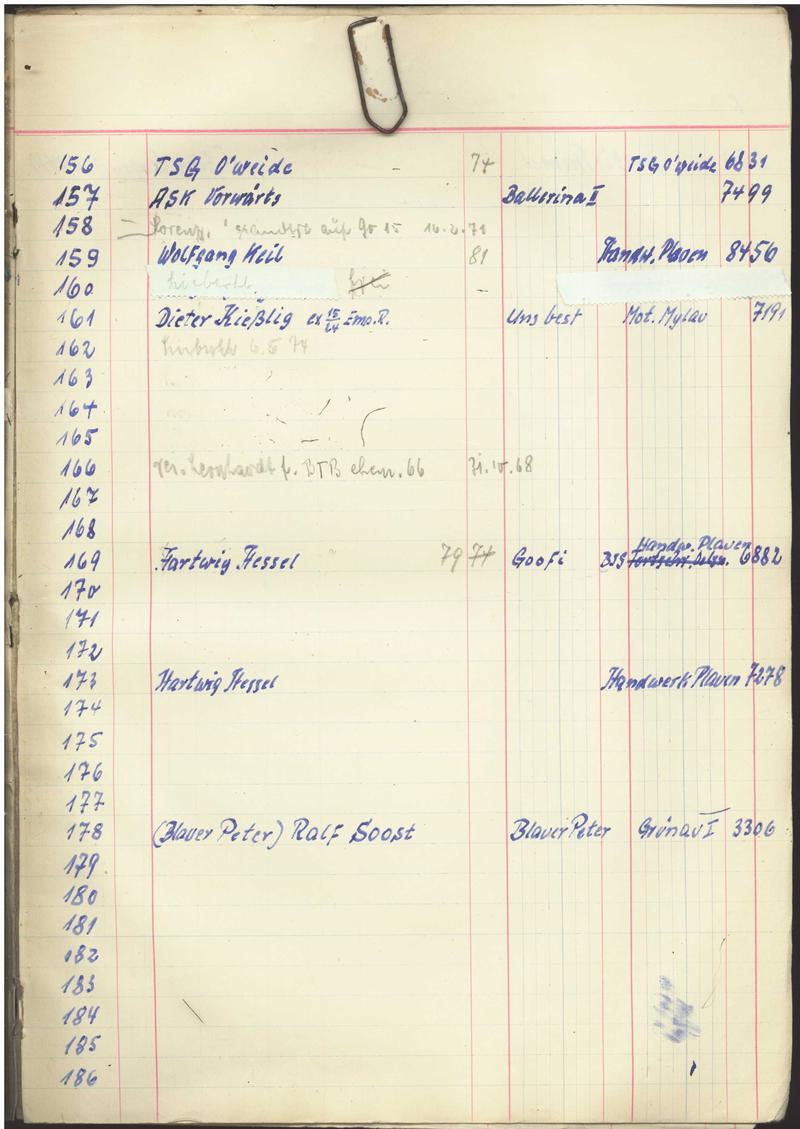 156 TSG O'weide - 74 TSG O'weide 6831
157 ASK Vorwärts Ballerina II 7499
158 Lorenz, auf Go 15 16.2.71
159 Wolfgang Keil 81 Handw. Plaven 8450
160 frei -
161 Dieter Kießlig ex 15/24 Emp.R. Uns best Mot. Mylav 7191
162 6.5 74
163
164
165
166 Leonhardt f. BTB ehem. 66 31.10.68
167
168
Handw. Plaven
169 Hartwig Hessel 79 74 Goofi BSG 6882
170
171
172
173 Hartwig Hessel Handwerk Plaven 7278
174
175
176
177
178 (Blauer Peter) Ralf Soost Blauer Peter Grünau I 3306
179
180
181
182
183
184
185
186